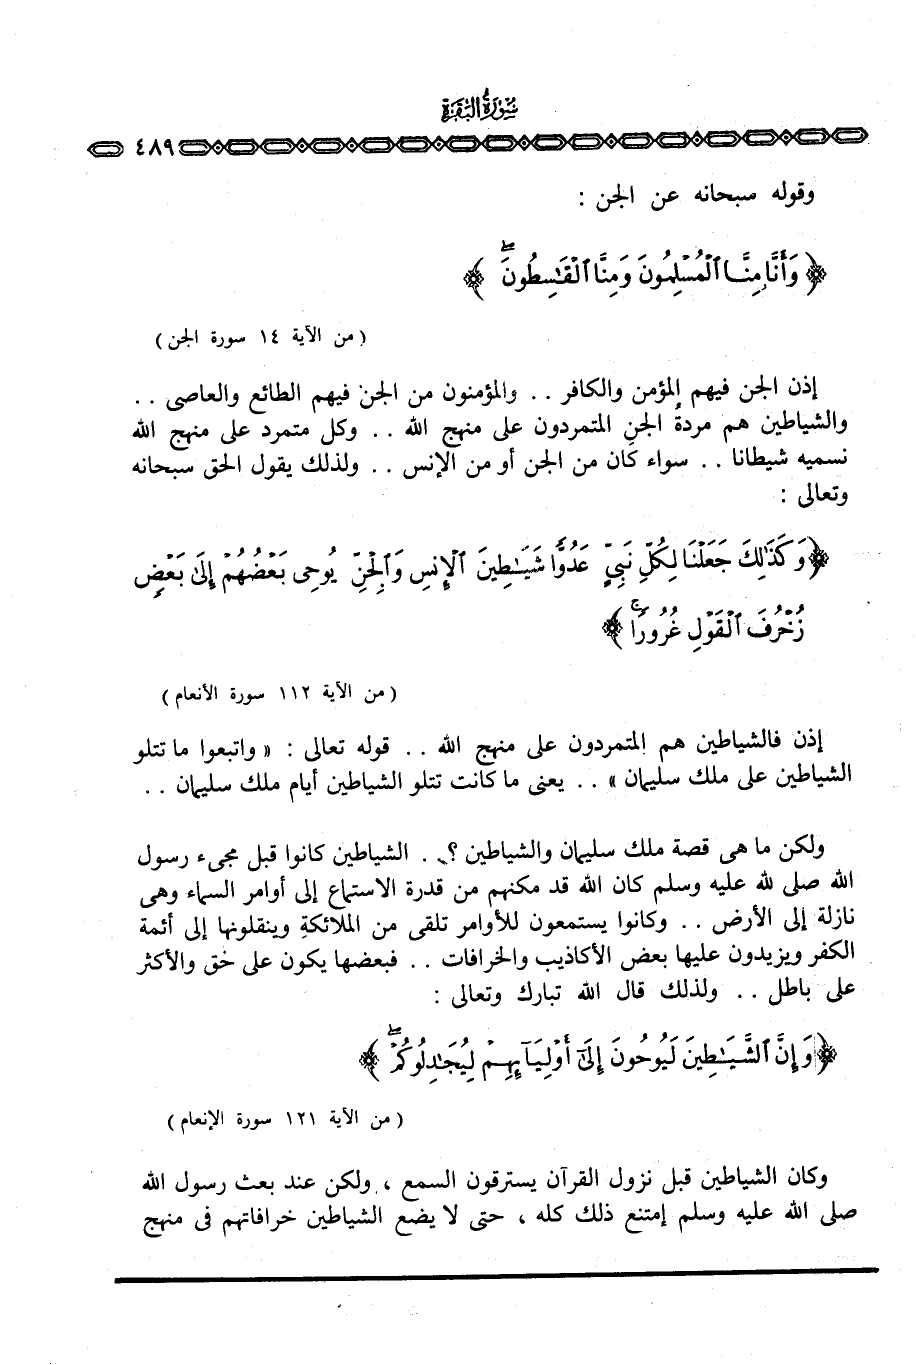 سُورَةُ الْبَقَرَةِ
٤٨٩
وقوله سبحانه عن الجن :
﴿ وَأَنَّا مِنَّا ٱلْمُسْلِمُونَ وَمِنَّا ٱلْقَٰسِطُونَ ۖ ﴾
( من الآية ١٤ سورة الجن )
إذن الجن فيهم المؤمن والكافر . . والمؤمنون من الجن فيهم الطائع والعاصى . .
والشياطين هم مردةُ الجن المتمردون على منهج الله . . وكل متمرد على منهج الله
نسميه شيطانا . . سواء كان من الجن أو من الإنس . . ولذلك يقول الحق سبحانه
وتعالى :
﴿ وَكَذَٰلِكَ جَعَلْنَا لِكُلِّ نَبِيٍّ عَدُوًّا شَيَٰطِينَ ٱلْإِنسِ وَٱلْجِنِّ يُوحِى بَعْضُهُمْ إِلَىٰ بَعْضٍ
زُخْرُفَ ٱلْقَوْلِ غُرُورًا ۚ ﴾
( من الآية ١١٢ سورة الأنعام )
إذن فالشياطين هم المتمردون على منهج الله . . قوله تعالى : « واتبعوا ما تتلو
الشياطين على ملك سليمان » . . يعنى ما كانت تتلو الشياطين أيام ملك سليمان . .
ولكن ما هى قصة ملك سليمان والشياطين ؟ . . الشياطين كانوا قبل مجىء رسول
الله صلى لله عليه وسلم كان الله قد مكنهم من قدرة الاستماع إلى أوامر السماء وهى
نازلة إلى الأرض . . وكانوا يستمعون للأوامر تلقى من الملائكةِ وينقلونها إلى أئمة
الكفر ويزيدون عليها بعض الأكاذيب والخرافات . . فبعضها يكون على خق والأكثر
على باطل . . ولذلك قال الله تبارك وتعالى :
﴿ وَإِنَّ ٱلشَّيَٰطِينَ لَيُوحُونَ إِلَىٰٓ أَوْلِيَآئِهِمْ لِيُجَٰدِلُوكُمْ ۖ ﴾
( من الآية ١٢١ سورة الإنعام )
وكان الشياطين قبل نزول القرآن يسترقون السمع ، ولكن عند بعث رسول الله
صلى الله عليه وسلم إمتنع ذلك كله ، حتى لا يضع الشياطين خرافاتهم فى منهج